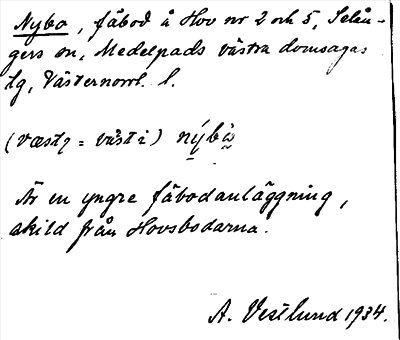 Nybo, fäbod å Hov nr 2 och 5, Selån-
gers sn, Medelpads västra domsagas
tg, Västernorrl. l.
(væstɩ = väst i) nýbὼ
Är en yngre fäbodanläggning,
skild från Hovsbodarna.
A. Vestlund 1934.